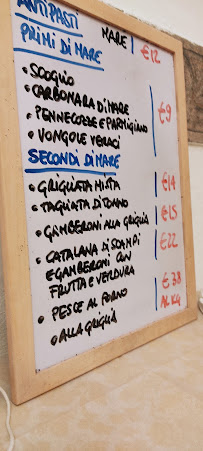 ANTIPASTI MARE €12
PRIMI DI MARE
• SCOGLIO
• CARBONARA DI MARE
• PENNECOZZE E PARMIGIANO €9
• VONGOLE VERACI
SECONDI DI MARE
• GRIGLIATA MISTA €14
• TAGLIATA DI TONNO
• GAMBERONI ALLA GRIGLIA €15
• CATALANA DI SCAMPI €22
E GAMBERONI CON
FRUTTA E VERDURA
• PESCE AL FORNO €38
O ALLA GRIGLIA AL KG